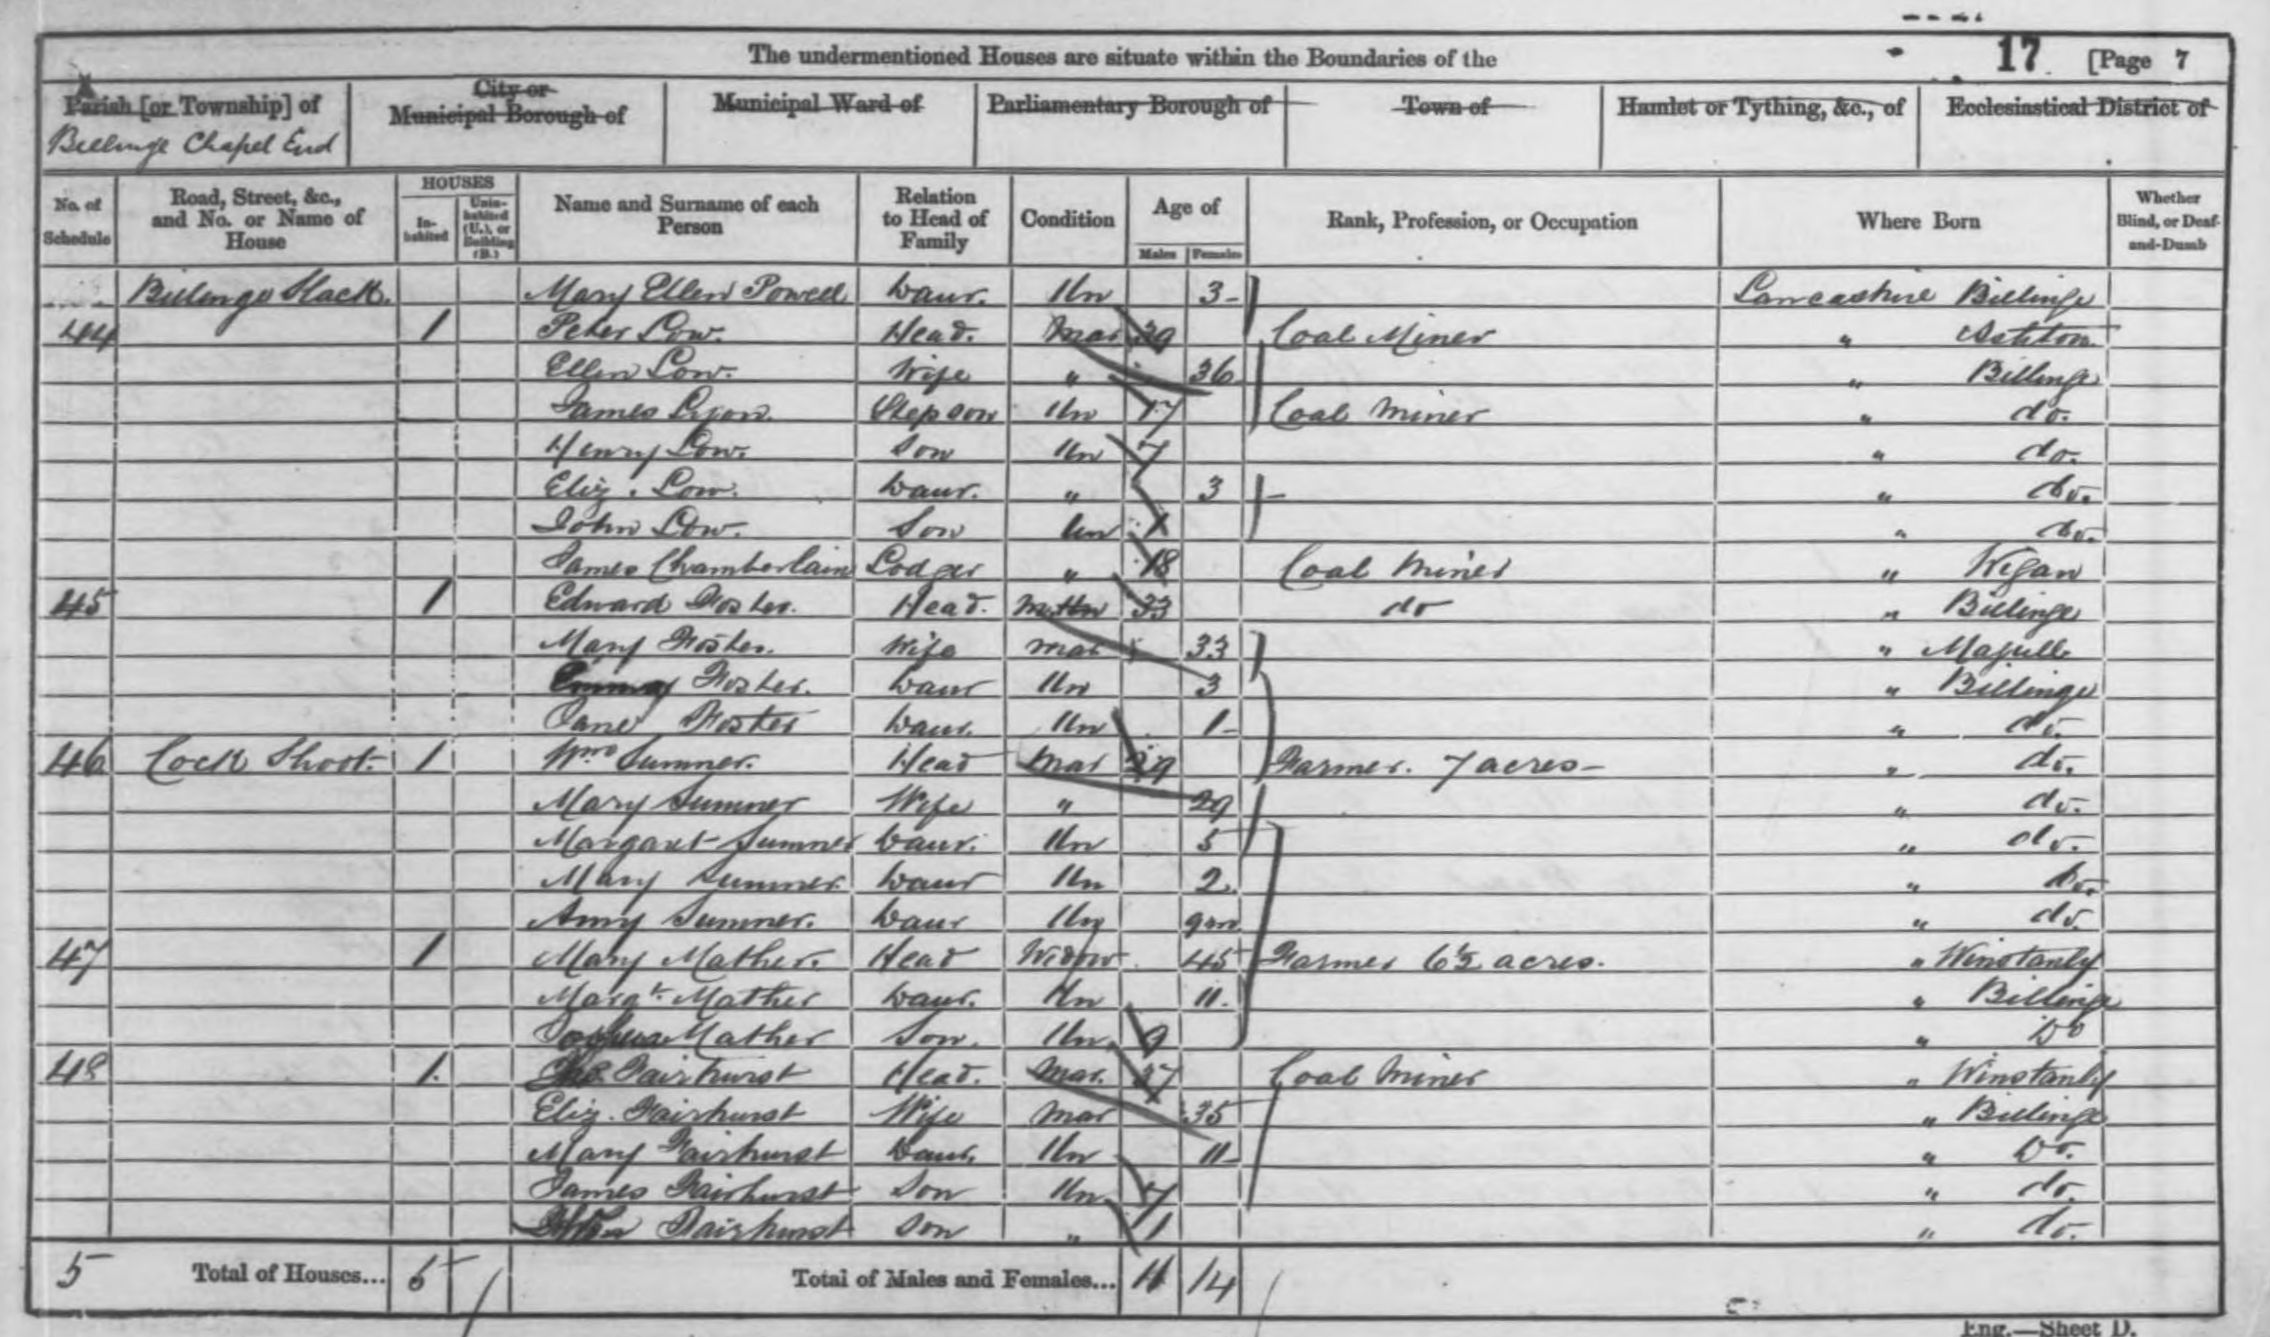 The undermentioned Houses are situate within the Boundaries of the 17 [Page 7
Parish [or Township] of City or Municipal Borough of Municipal Ward of Parliamentary Borough of Town of Hamlet or Tything, &c., of Ecclesiastical District of
Billinge Chapel End
No. of Schedule Road, Street, &c., and No. or Name of House HOUSES Inhabited Uninhabited (U.), or Building (B.) Name and Surname of each Person Relation to Head of Family Condition Age of Males Females Rank, Profession, or Occupation Where Born Whether Blind, or Deaf-and-Dumb
Billinge Slack. Mary Ellen Powell Daur. Un 3 Lancashire Billinge
44 1 Peter Low. Head. Mar 39 Coal Miner " Ashton
Ellen Low. Wife " 36 " Billinge
James Lyon. Stepson Un 17 Coal Miner " do.
Henry Low. Son Un 7 " do.
Eliz. Low. Daur. " 3 " Do.
John Low. Son Un 1 " Do.
James Chamberlain Lodger " 18 Coal Miner " Wigan
45 1 Edward Foster. Head. 33 do " Billinge
Mary Foster. Wife Mar 33 " Magull
Foster. Daur Un 3 " Billinge
Jane Foster Daur. Un 1 " do.
46 Cock Shoot. 1 Wm Sumner. Head Mar 29 Farmer. 7 acres " do.
Mary Sumner Wife " 29 " do.
Margaret Sumner Daur. Un 5 " do.
Mary Sumner. Daur Un 2 " Do.
Amy Sumner. Daur Un 9m " do.
47 1 Mary Mather. Head Widow 45 Farmer 6½ acres. " Winstanly
Margt. Mather Daur. Un 11 " Billinge
Joshua Mather Son. Un 9 " Do
48 1 Fairhurst Head. Mar. 37 Coal Miner " Winstanly
Eliz. Fairhurst Wife Mar 35 " Billinge
Mary Fairhurst Daur. Un 11 " Do.
James Fairhurst Son Un 7 " do.
Fairhurst Son " 1 " do.
5 Total of Houses... 5 Total of Males and Females... 11 14
Eng.—Sheet D.